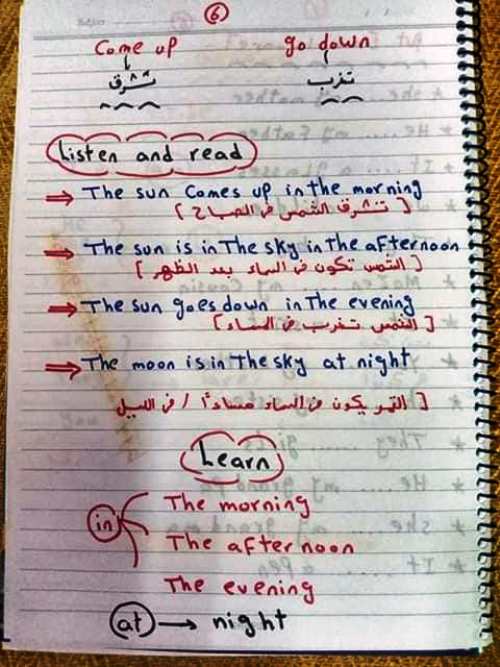 6
Come up go down
تشرق تغرب
Listen and read
⇒ The sun Comes up in the morning
[ تشرق الشمس فى الصباح ]
⇒ The sun is in The sky in the afternoon
[ الشمس تكون فى السماء بعد الظهر ]
⇒ The sun goes down in The evening
[ الشمس تغرب فى المساء ]
⇒ The moon is in The sky at night
[ القمر يكون فى السماء مساءاً / فى الليل
Learn
in
The morning
The afternoon
The evening
at → night